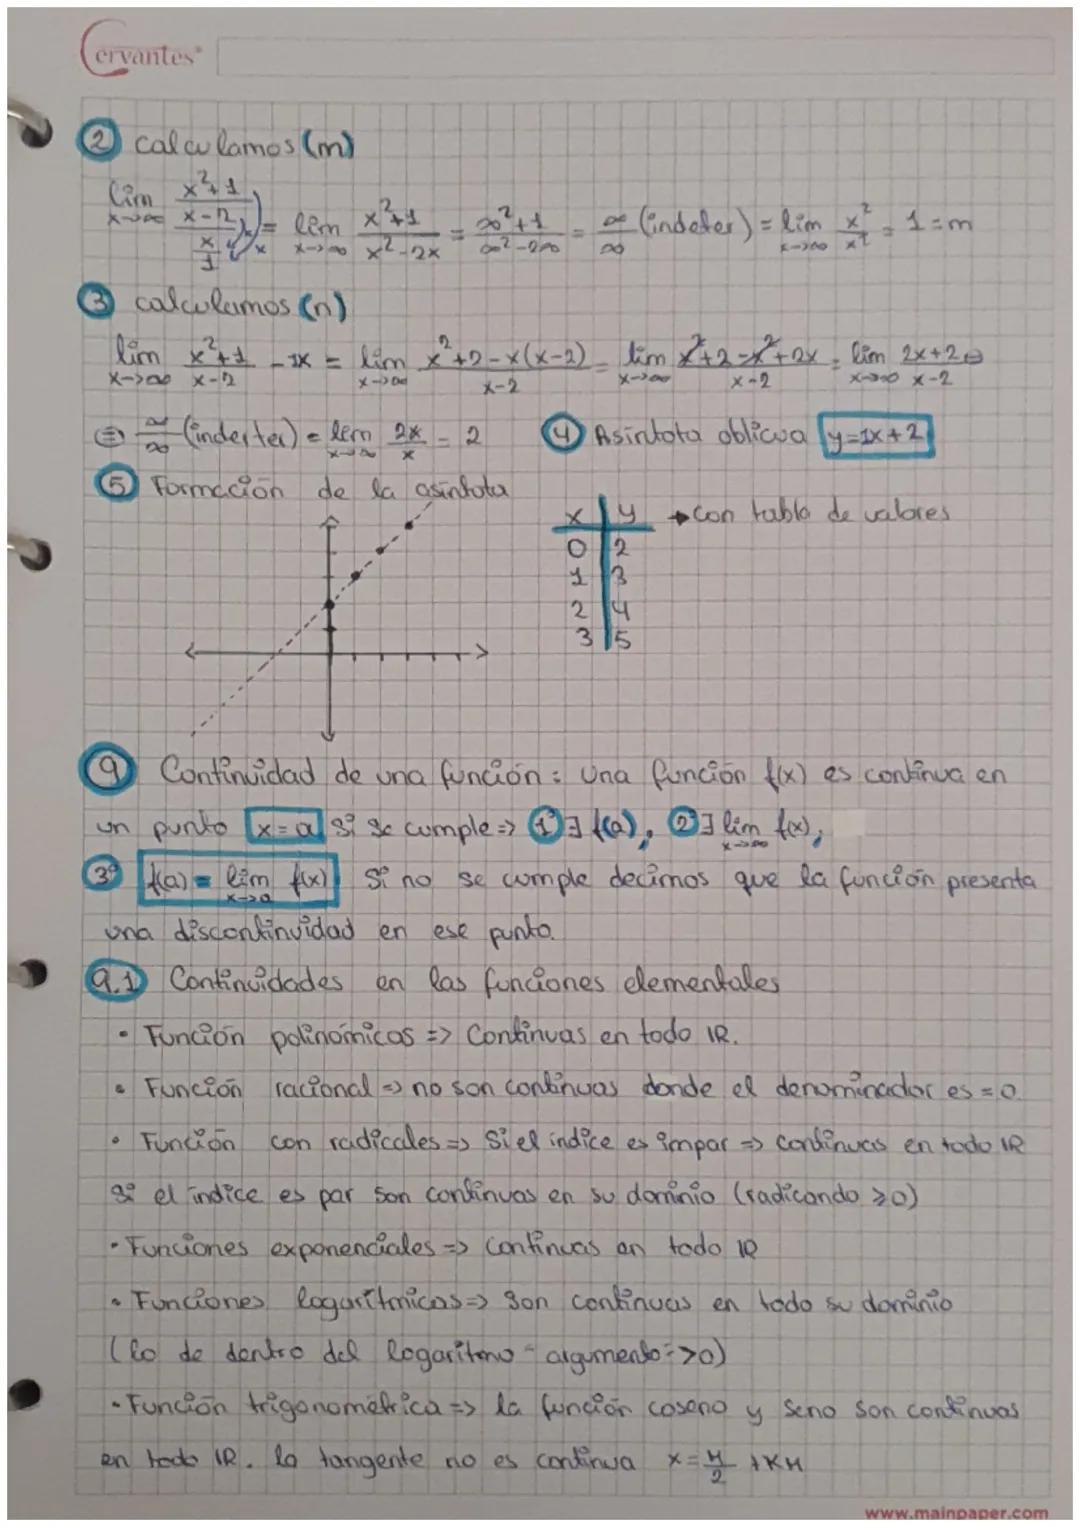 Cervantes®
② calculamos (m)
lim x→∞ (x²+1 / x-2) / (x / 1) = lim x→∞ x²+1 / x²-2x = ∞²+1 / ∞²-2∞ = ∞/∞ (indeter) = lim x→∞ x²/x² = 1 = m
③ calculamos (n)
lim x→∞ x²+1 / x-2 - 1x = lim x→∞ x²+2-x(x-2) / x-2 = lim x→∞ x²+2-x²+2x / x-2 = lim x→∞ 2x+2 / x-2 =
= ∞/∞ (indeter) = lim x→∞ 2x/x = 2 ④ Asíntota oblicua y=1x+2
⑤ Formación de la asíntota
x y → con tabla de valores
0 2
1 3
2 4
3 5
⑨ Continuidad de una función: una función f(x) es continua en
un punto x=a si se cumple => 1º ∃ f(a), 2º ∃ lim x→∞ f(x),
3º f(a) = lim x→a f(x) Si no se cumple decimos que la función presenta
una discontinuidad en ese punto.
9.1 Continuidades en las funciones elementales
• Función polinómicas => Continuas en todo IR.
• Función racional => no son continuas donde el denominador es = 0.
• Función con radicales => Si el índice es impar => continuas en todo IR
Si el índice es par son continuas en su dominio (radicando ≥0)
• Funciones exponenciales => continuas en todo IR
• Funciones logarítmicas => Son continuas en todo su dominio
(lo de dentro del logaritmo - argumento - >0)
• Función trigonométrica => la función coseno y seno son continuas
en todo IR. la tangente no es continua x= π/2 + Kπ
www.mainpaper.com